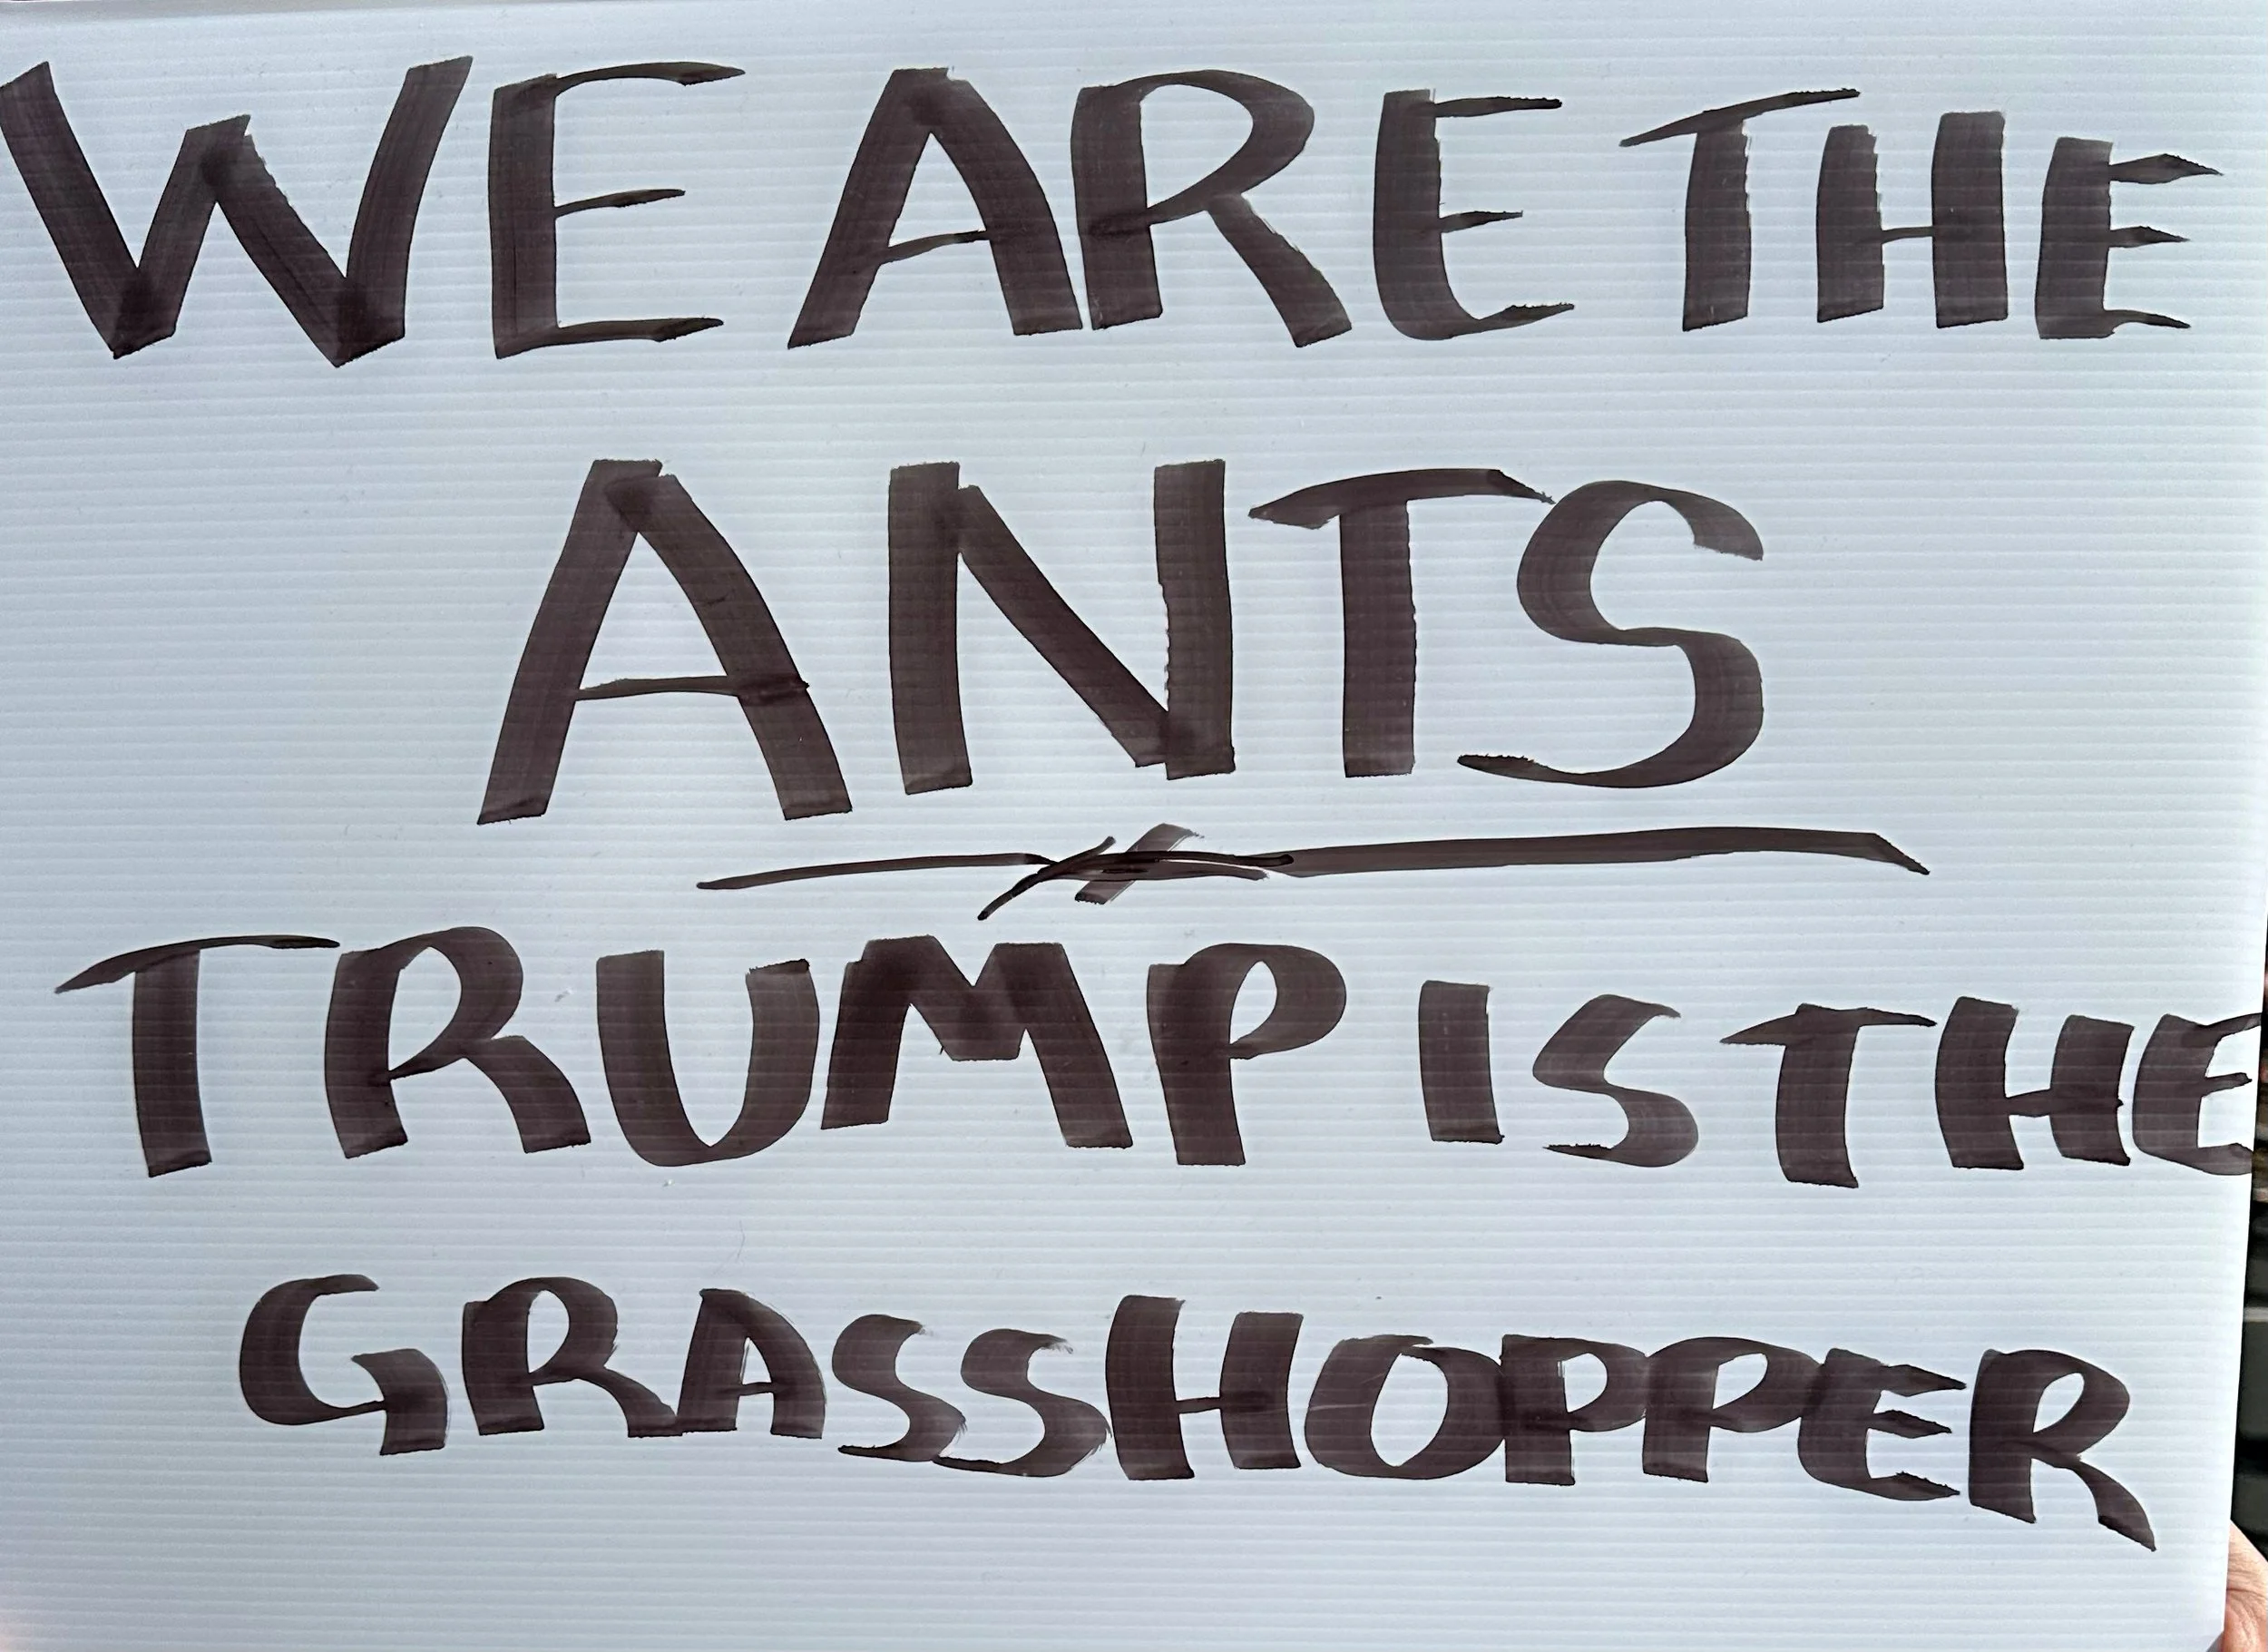 WE ARE THE
ANTS
TRUMP IS THE
GRASSHOPPER